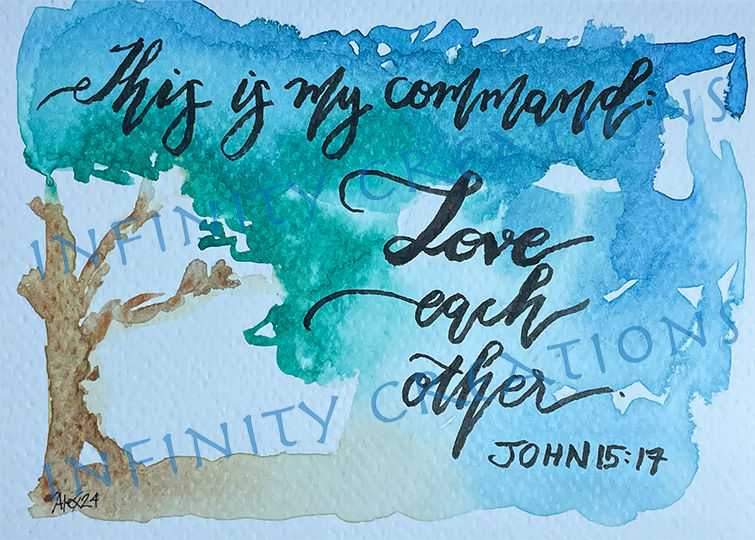 This is my command:
INFINITY CREATIONS
Love
each
other.
INFINITY CREATIONS
JOHN 15:17
Alex24